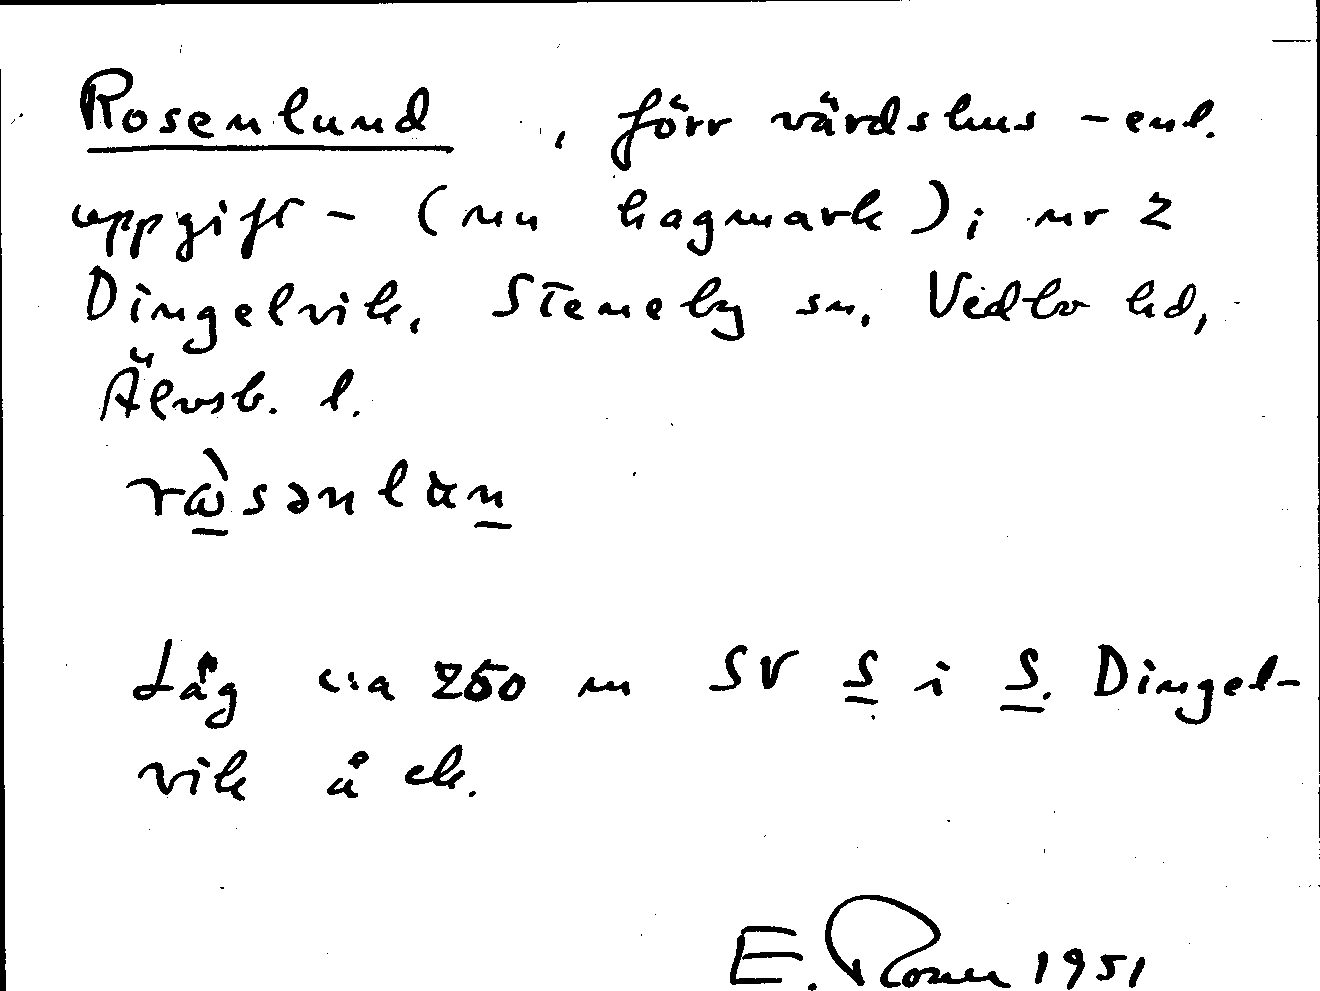 Rosenlund , förr värdshus - enl.
uppgift - (nu hagmark); nr 2
Dingelvik, Steneby sn, Vedbo hd,
Älvsb. l.
rὼsənlàn
Låg c:a 250 m SV S i S. Dingel-
vik å ek.
E. 1951